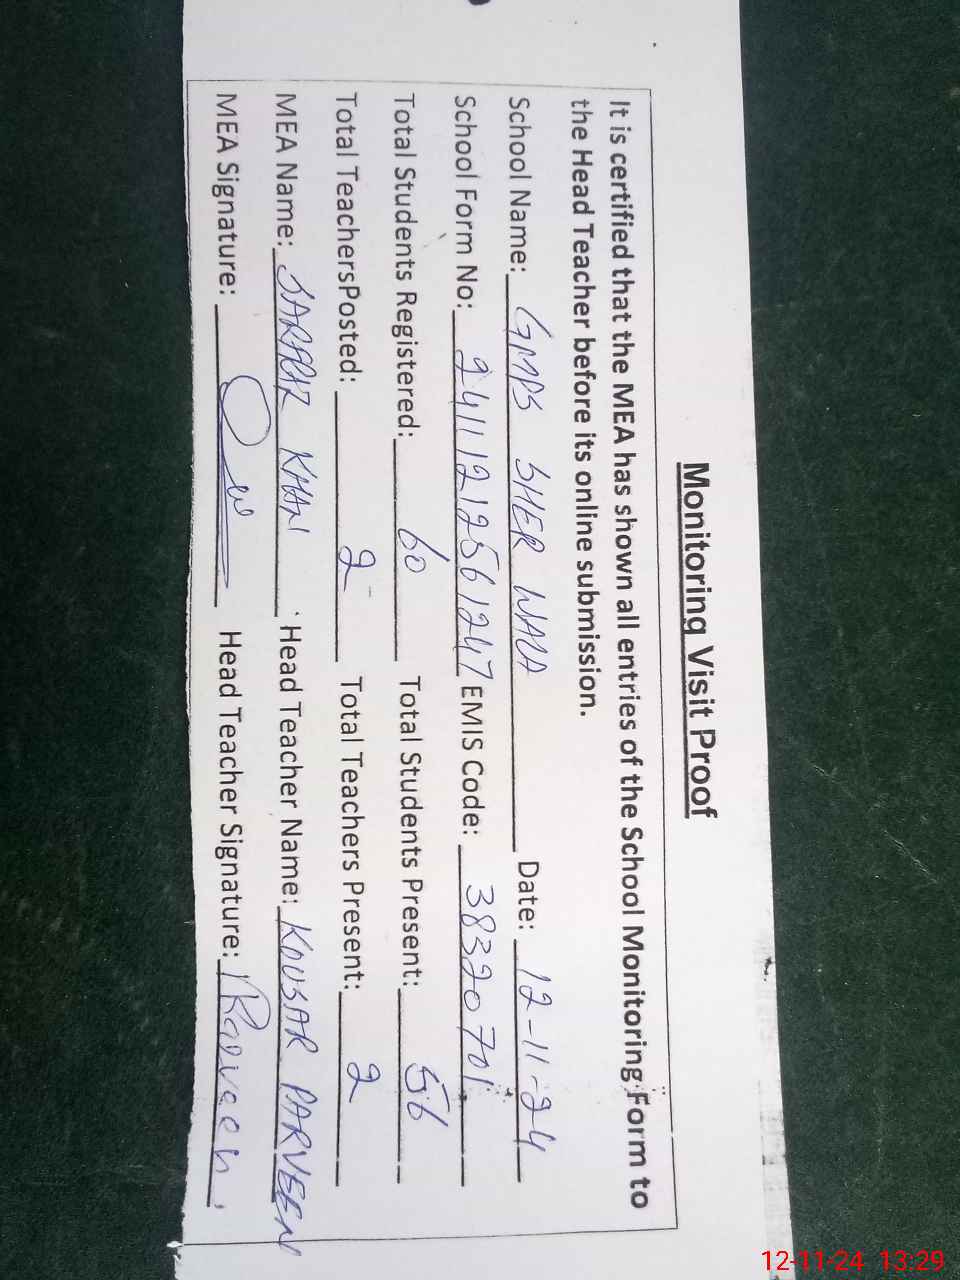 Monitoring Visit Proof
It is certified that the MEA has shown all entries of the School Monitoring Form to
the Head Teacher before its online submission.
School Name: GMPS SHER WALA Date: 12-11-24
School Form No: 24111212561247 EMIS Code: 38320701
Total Students Registered: 60 Total Students Present: 56
Total TeachersPosted: 2 Total Teachers Present: 2
MEA Name: SARFRAZ KHAN Head Teacher Name: KOUSAR PARVEEN
MEA Signature: Head Teacher Signature: Parveen
12-11-24 13:29